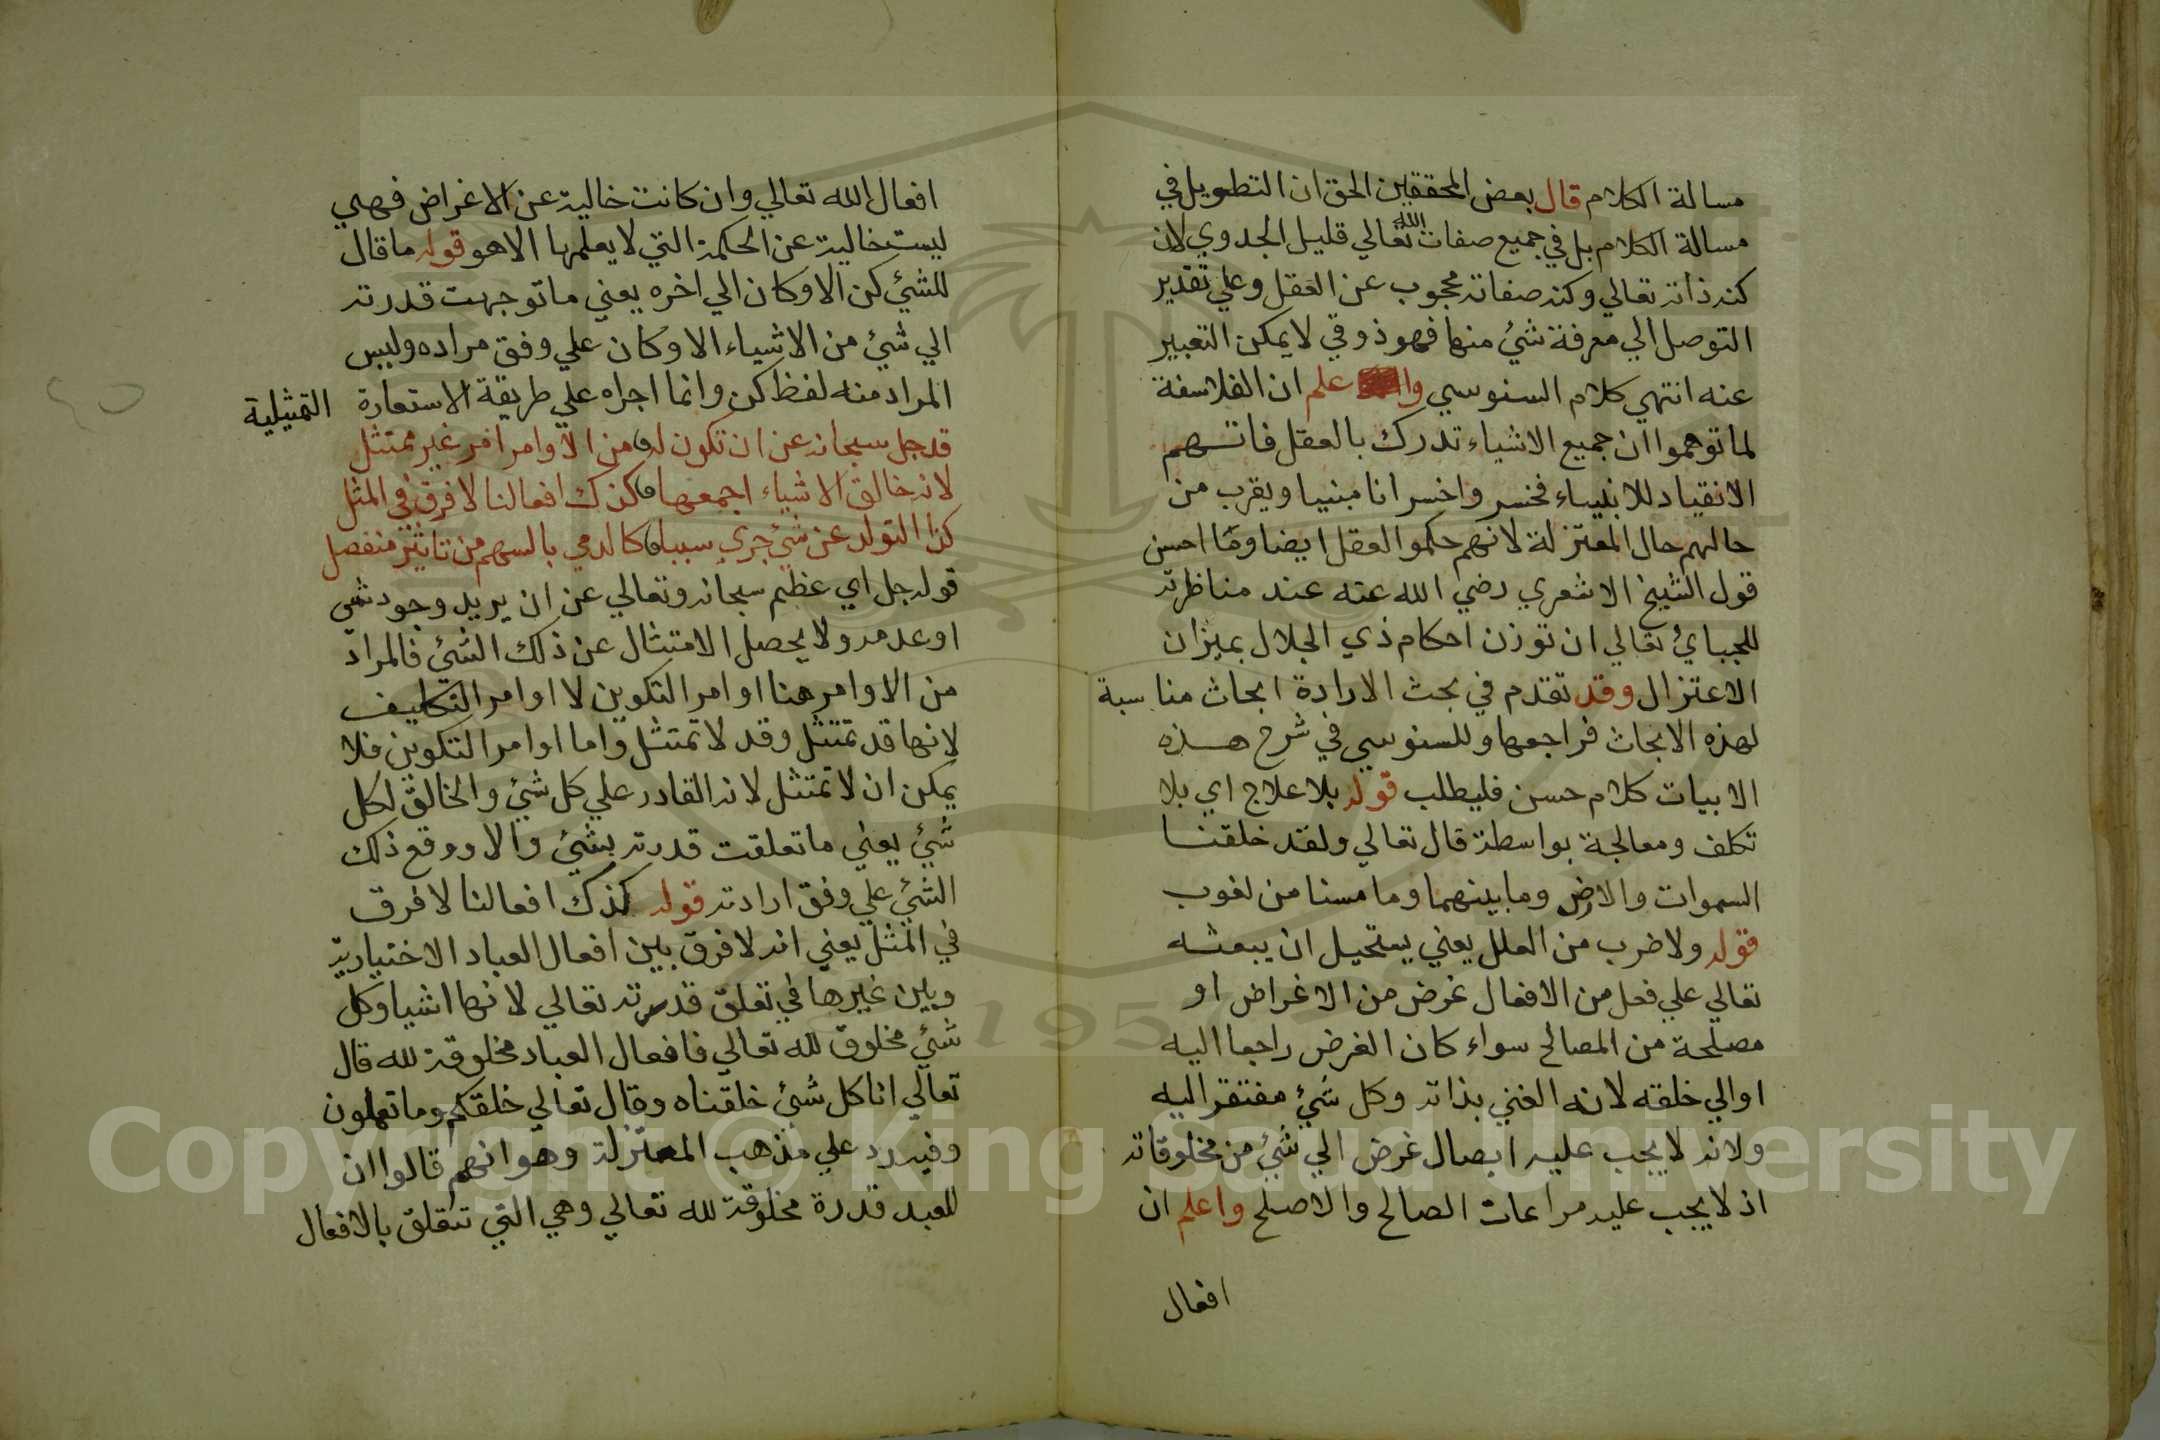 مسالة الكلام قال بعض المحققين الحق ان التطويل في
مسالة الكلام بل في جميع صفات الله تعالي قليل الجدوي لان
كنه ذاته تعالي وكنه صفاته محجوب عن العقل وعلي تقدير
التوصل الي معرفة شيء منها فهو ذوقي لا يمكن التعبير
عنه انتهي كلام السنوسي واعلم ان الفلاسفة
لما توهموا ان جميع الاشياء تدرك بالعقل فاتهم
الانقياد للانبياء فخسروا خسرانا مبنيا ويقرب من
حالهم حال المعتزلة لانهم حكموا العقل ايضا وما احسن
قول الشيخ الاشعري رضي الله عنه عند مناظرته
للجباي تعالي ان توزن احكام ذي الجلال بميزان
الاعتزال وقد تقدم في بحث الارادة ابحاث مناسبة
لهذه الابحاث فراجعها وللسنوسي في شرح هذه
الابيات كلام حسن فليطلب قوله بلا علاج اي بلا
تكلف ومعالجة بواسطة قال تعالي ولقد خلقنا
السموات والارض وما بينهما وما مسنا من لغوب
قوله ولا ضرب من العلل يعني يستحيل ان يبعثه
تعالي علي فعل من الافعال غرض من الاغراض او
مصلحة من المصالح سواء كان الغرض راجعا اليه
او الي خلقه لانه الغني بذاته وكل شيء مفتقر اليه
ولانه لا يجب عليه ايصال غرض الي شيء من مخلوقاته
اذ لا يجب عليه مراعات الصالح والاصلح واعلم ان
افعال
افعال الله تعالي وان كانت خالية عن الاغراض فهي
ليست خالية عن الحكمة التي لا يعلمها الا هو قوله ما قال
للشيء كن الا وكان الي اخره يعني ما توجهت قدرته
الي شيء من الاشياء الا وكان علي وفق مراده وليس
المراد منه لفظ كن وانما اجراه علي طريقة الاستعارة التمثيلية
قد جل سبحانه عن ان تكون له من الاوامر امر غير ممتثل
لانه خالق الاشياء اجمعها كذلك افعالنا لا فرق في المثل
كذا التولد عن شيء جري سببا كالرمي بالسهم من تاثير منفصل
قوله جل اي عظم سبحانه وتعالي عن ان يريد وجود شي
او عدمه ولا يحصل الامتثال عن ذلك الشيء فالمراد
من الاوامر هنا اوامر التكوين لا اوامر التكليف
لانها قد تمتثل وقد لا تمتثل واما اوامر التكوين فلا
يمكن ان لا تمتثل لانه القادر علي كل شيء والخالق لكل
شيء يعني ما تعلقت قدرته بشيء والا ووقع ذلك
الشيء علي وفق ارادته قوله كذلك افعالنا لا فرق
في المثل يعني انه لا فرق بين افعال العباد الاختيارية
وبين غيرها في تعلق قدرته تعالي لانها اشيا وكل
شيء مخلوق لله تعالي فافعال العباد مخلوقة لله قال
تعالي انا كل شيء خلقناه وقال تعالي خلقكم وما تعملون
وفيه رد علي مذهب المعتزلة وهو انهم قالوا ان
للعبد قدرة مخلوقة لله تعالي وهي التي تتعلق بالافعال
Copyright © King Saud University